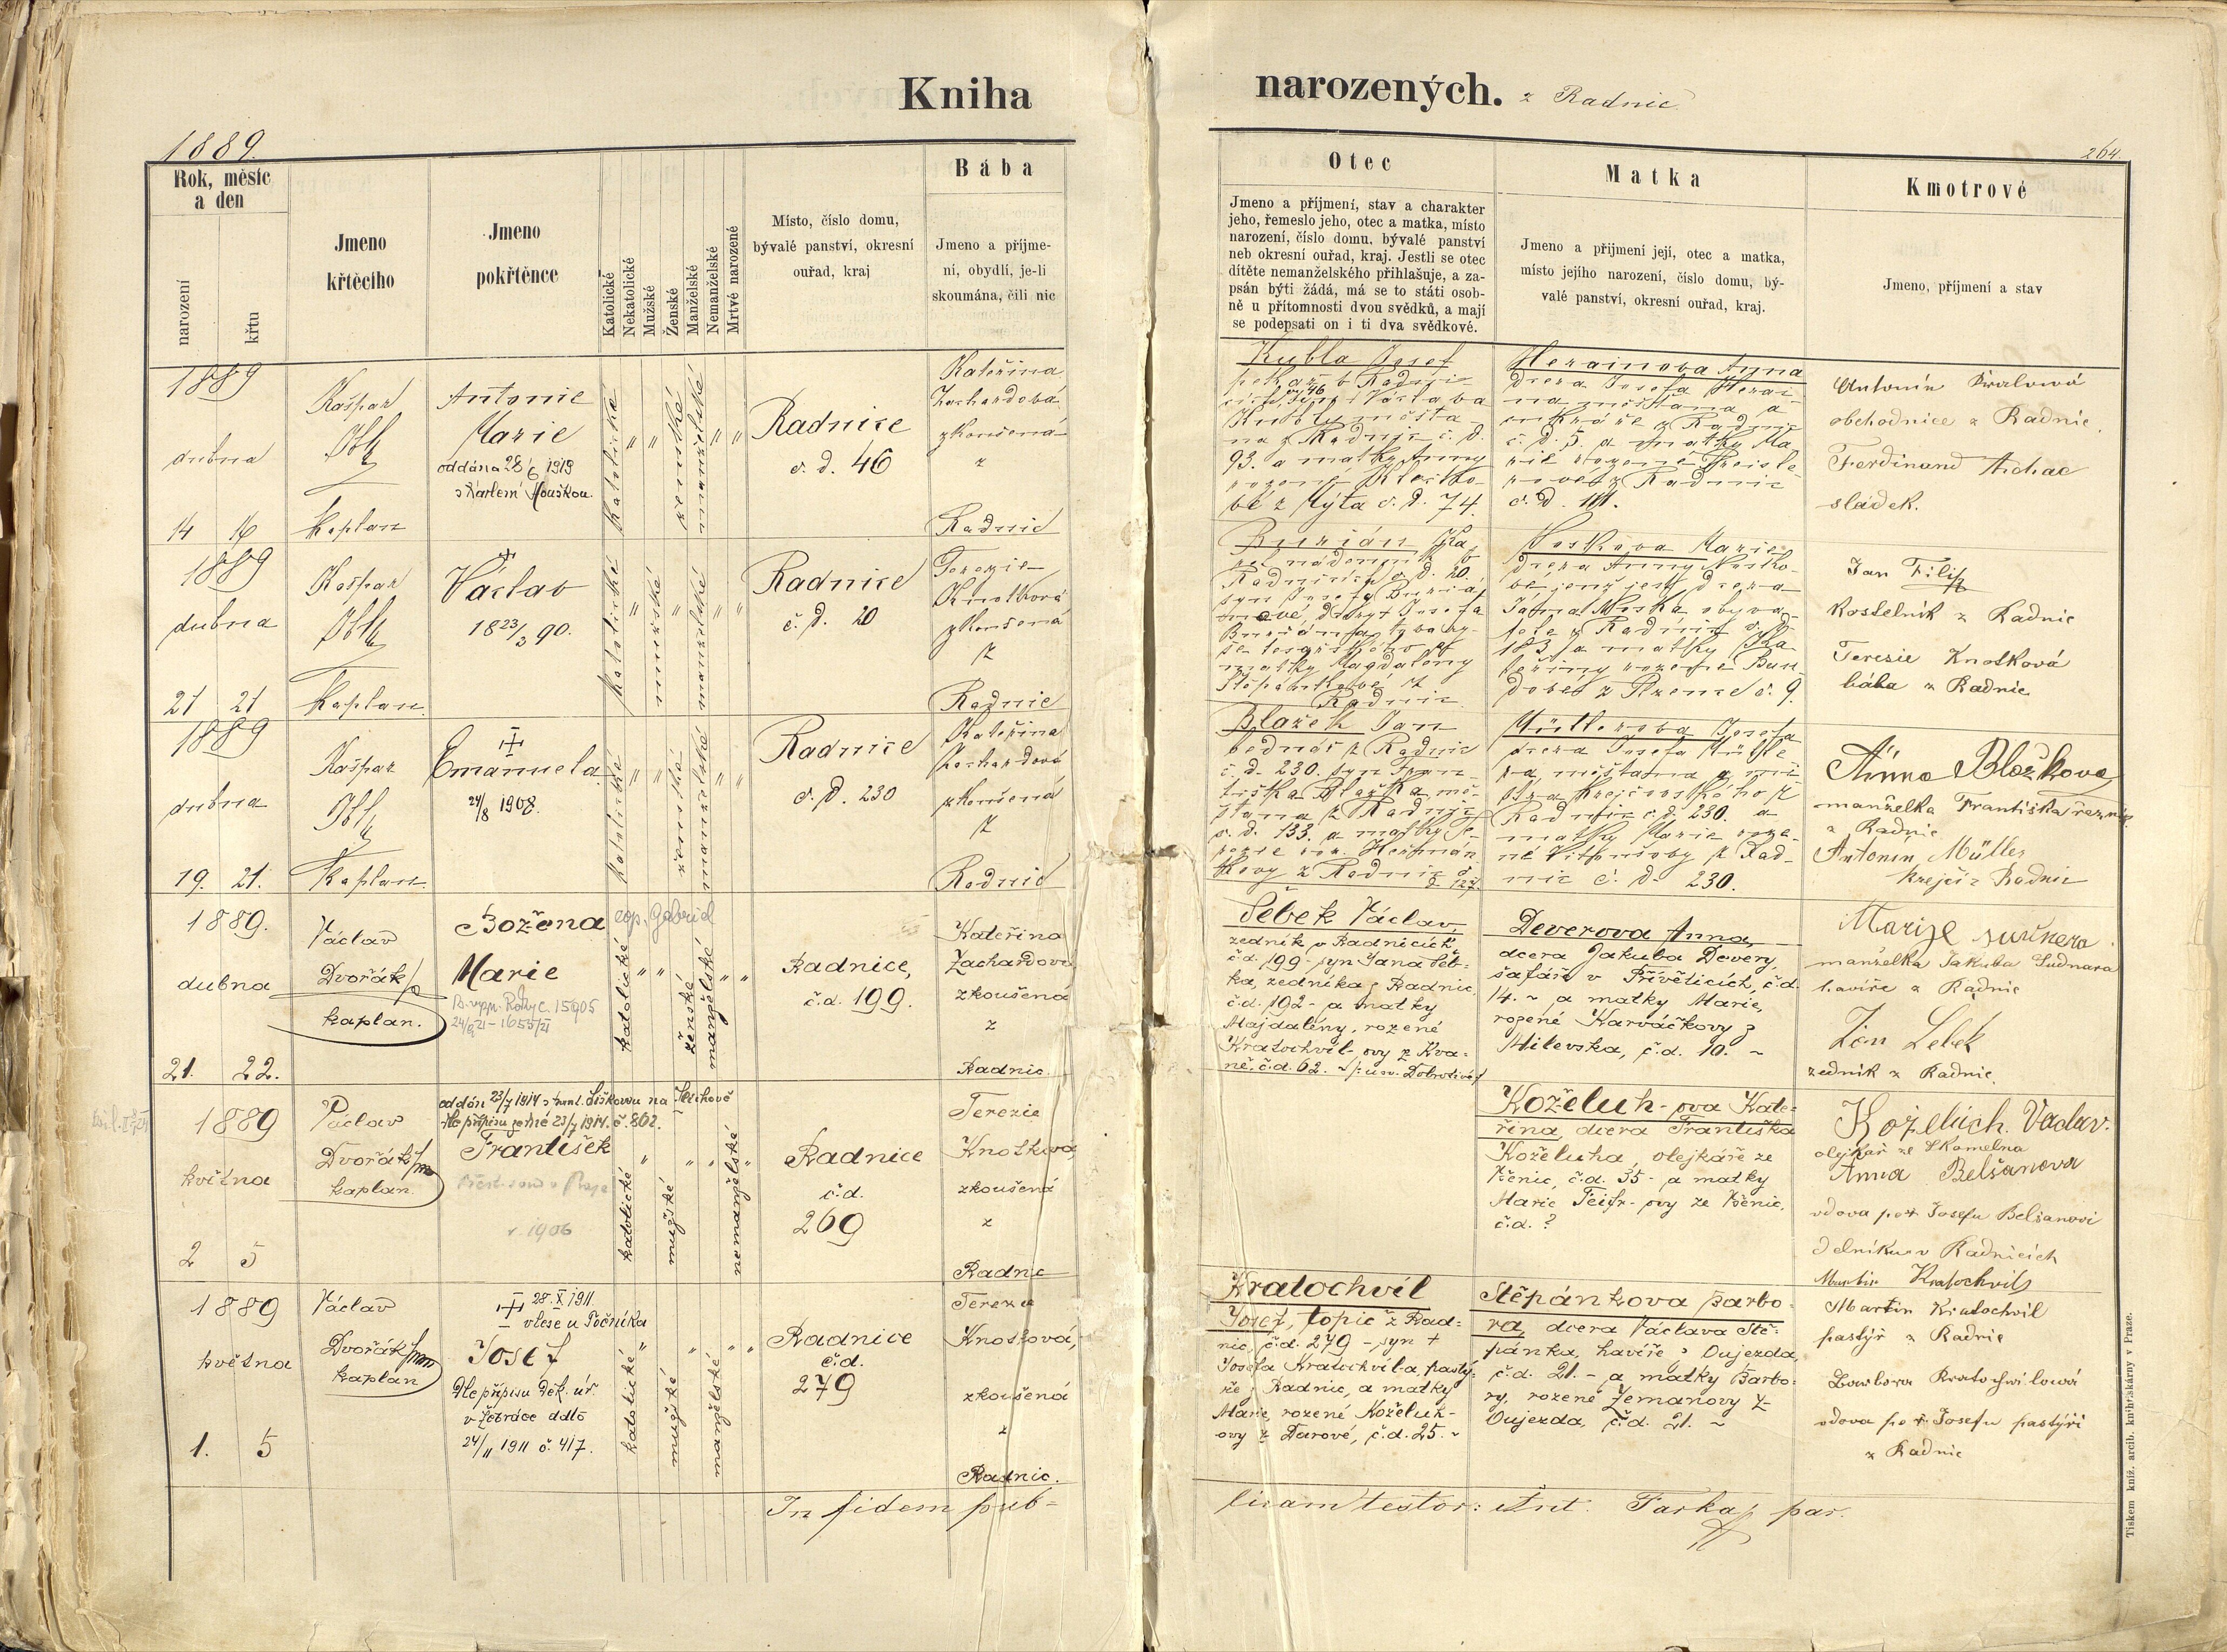 Kniha
narozených. z Radnic
1889.
264.
Rok, měsíc
a den
narození
křtu
Jmeno
křtěcího
Jmeno
pokřtěnce
Katolické
Nekatolické
Mužské
Ženské
Manželské
Nemanželské
Mrtvě narozené
Místo, číslo domu,
bývalé panství, okresní
ouřad, kraj
Bába
Jmeno a příjme-
ní, obydlí, je-li
skoumána, čili nic
Otec
Jmeno a příjmení, stav a charakter
jeho, řemeslo jeho, otec a matka, místo
narození, číslo domu, bývalé panství
neb okresní ouřad, kraj. Jestli se otec
dítěte nemanželského přihlašuje, a za-
psán býti žádá, má se to státi osob-
ně u přítomnosti dvou svědků, a mají
se podepsati on i ti dva svědkové.
Matka
Jmeno a příjmení její, otec a matka,
místo jejího narození, číslo domu, bý-
valé panství, okresní ouřad, kraj.
Kmotrové
Jmeno, příjmení a stav
1889
dubna
14 16
Kašpar
kaplan
Antonie
Marie
oddána 28/6 1919
s Karlem Houškou.
katolické
" "
ženské
manželské
" "
Radnice
č. d. 46
Kateřina
Zachardová
zkoušená
z
Radnic
Kubla Josef
pekař v Radni-
cích č. 46 syn Václava
Kubly měšťa-
na z Radnic č. d.
93. a matky Anny
rozené
vé z Mýta č. d. 74.
Herainova Anna
dcera Josefa Herai-
na měšťana a
z Radnic
č. d. 5. a matky Ma-
rie rozené
z Radnic
č. d. 111.
Antonín
obchodnice z Radnic.
Ferdinand
sládek.
1889
dubna
21 21
Kašpar
kaplan.
Václav
18 23/3 90.
katolické
"
mužské
"
manželské
" "
Radnice
č. d. 20
Terezie
Knotková
zkoušená
z
Radnic
Burián Ka-
rel nádenník v
Radnicích č. d. 20.
syn Josefa Buriá-
Josefa
matky Magdaleny
Štěpánkové z
Radnic.
Noskova Marie
dcera Anny Nosko-
vé jenž jest dcera
Jána Noska obyva-
tele z Radnic č. d.
183 a matky Ka-
teřiny rozené
Jan Filip
kostelník z Radnic
Terezie Knotková
bába z Radnic
1889
dubna
19. 21.
Kašpar
kaplan.
Emanuela
24/8 1908.
katolické
" "
ženské
manželské
" "
Radnice
č. d. 230
Kateřina
Zachardová
zkoušená
z
Radnic
Blažek Jan
bednář z Radnic
č. d. 230. syn Fran-
tiška Blažka mě-
šťana z Radnic
č. d. 133. a matky Te-
rezie roz. Heřmán-
kovy z Radnic č. 127.
Müllerova Josefa
dcera Josefa Mülle-
ra, měšťana a mi-
stra krejčovského z
Radnic č. d. 230. a
matky Marie roze-
né z Rad-
nic č. d. 230.
Anna Blažkova
manželka Františka řezníka
z Radnic
Antonín Müller
krejčí z Radnic
1889.
dubna
21. 22.
Václav
Dvořák
kaplan.
Božena
Marie
katolické
" "
ženské
manželské
" "
Radnice,
č.d. 199.
Kateřina
Zachardova
zkoušená
z
Radnic.
Šebek Václav,
zedník v Radnicích
č.d. 199 - syn Jana Šeb-
ka, zedníka z Radnic,
č.d. 192 - a matky
Majdalény, rozené
Kratochvíl-ovy z Kva-
ně, č.d. 62.
Deverova Anna,
dcera Jakuba Devery,
šafáře v Přívěticích, č.d.
14. - a matky Marie,
rozené Karváčkovy z
Milevska, č.d. 10. -
manželka Jakuba
havíře z Radnic
Jan Šebek
zedník z Radnic.
1889
května
2 5
Václav
Dvořák
kaplan.
oddán 23/7 1914 s Šiškovou na Smíchově
dle přípisu 23/7 1914. č. 802.
František
v. 1906
katolické
"
mužské
" "
nemanželské
"
Radnice
č.d.
269
Terezie
Knotkova,
zkoušená
z
Radnic
Koželuh-ova Kate-
řina, dcera Františka
Koželuha, olejkáře ze
Křenic, č.d. 35 - a matky
Marie ze Křenic,
č.d. ?
Koželuch. Vaclav.
olejkář ze Skomelna
Anna Belšanova
vdova po † Josefu Belšanovi
dělníku v Radnicích
1889
května
1. 5
Václav
Dvořák
kaplan
28. X 1911
v lese u Počníka
Josef
Dle přípisu Děk. úř.
v Žebráce ddto
24/11 1911 č. 417.
katolické
"
mužské
"
manželské
" "
Radnice
č.d.
279
Terezie
Knotková,
zkoušená
z
Radnic.
Kratochvíl
Josef, topič z Rad-
nic, č.d. 279 - syn †
Josefa Kratochvíl-a, pastý-
ře z Radnic, a matky
Marie, rozené Koželuh-
ovy z Darové, č.d. 25. -
Štěpánkova Barbo-
ra, dcera Václava Ště-
pánka, havíře z Oujezda,
č.d. 21. - a matky Barbo-
ry, rozené Zemanovy z
Oujezda, č.d. 21. -
Martin Kratochvíl
Martin Kratochvil
pastýř z Radnic
Barbora Kratochvilová
vdova po † Josefu pastýři
z Radnic
In fidem pub-
licam testor: Ant. Tarka, par.
Tiskem kníž. arcib. knihtiskárny v Praze.